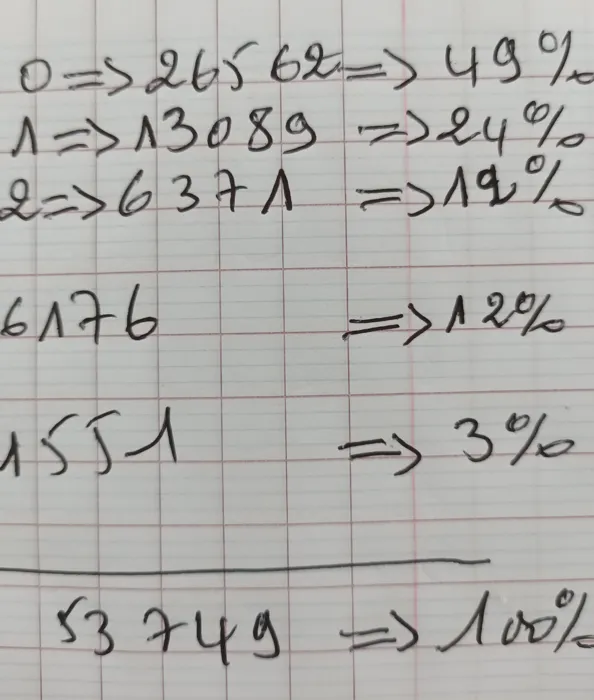 0 => 26562 => 49%
1 => 13089 => 24%
2 => 6371 => 12%
6176 => 12%
1551 => 3%
53749 => 100%